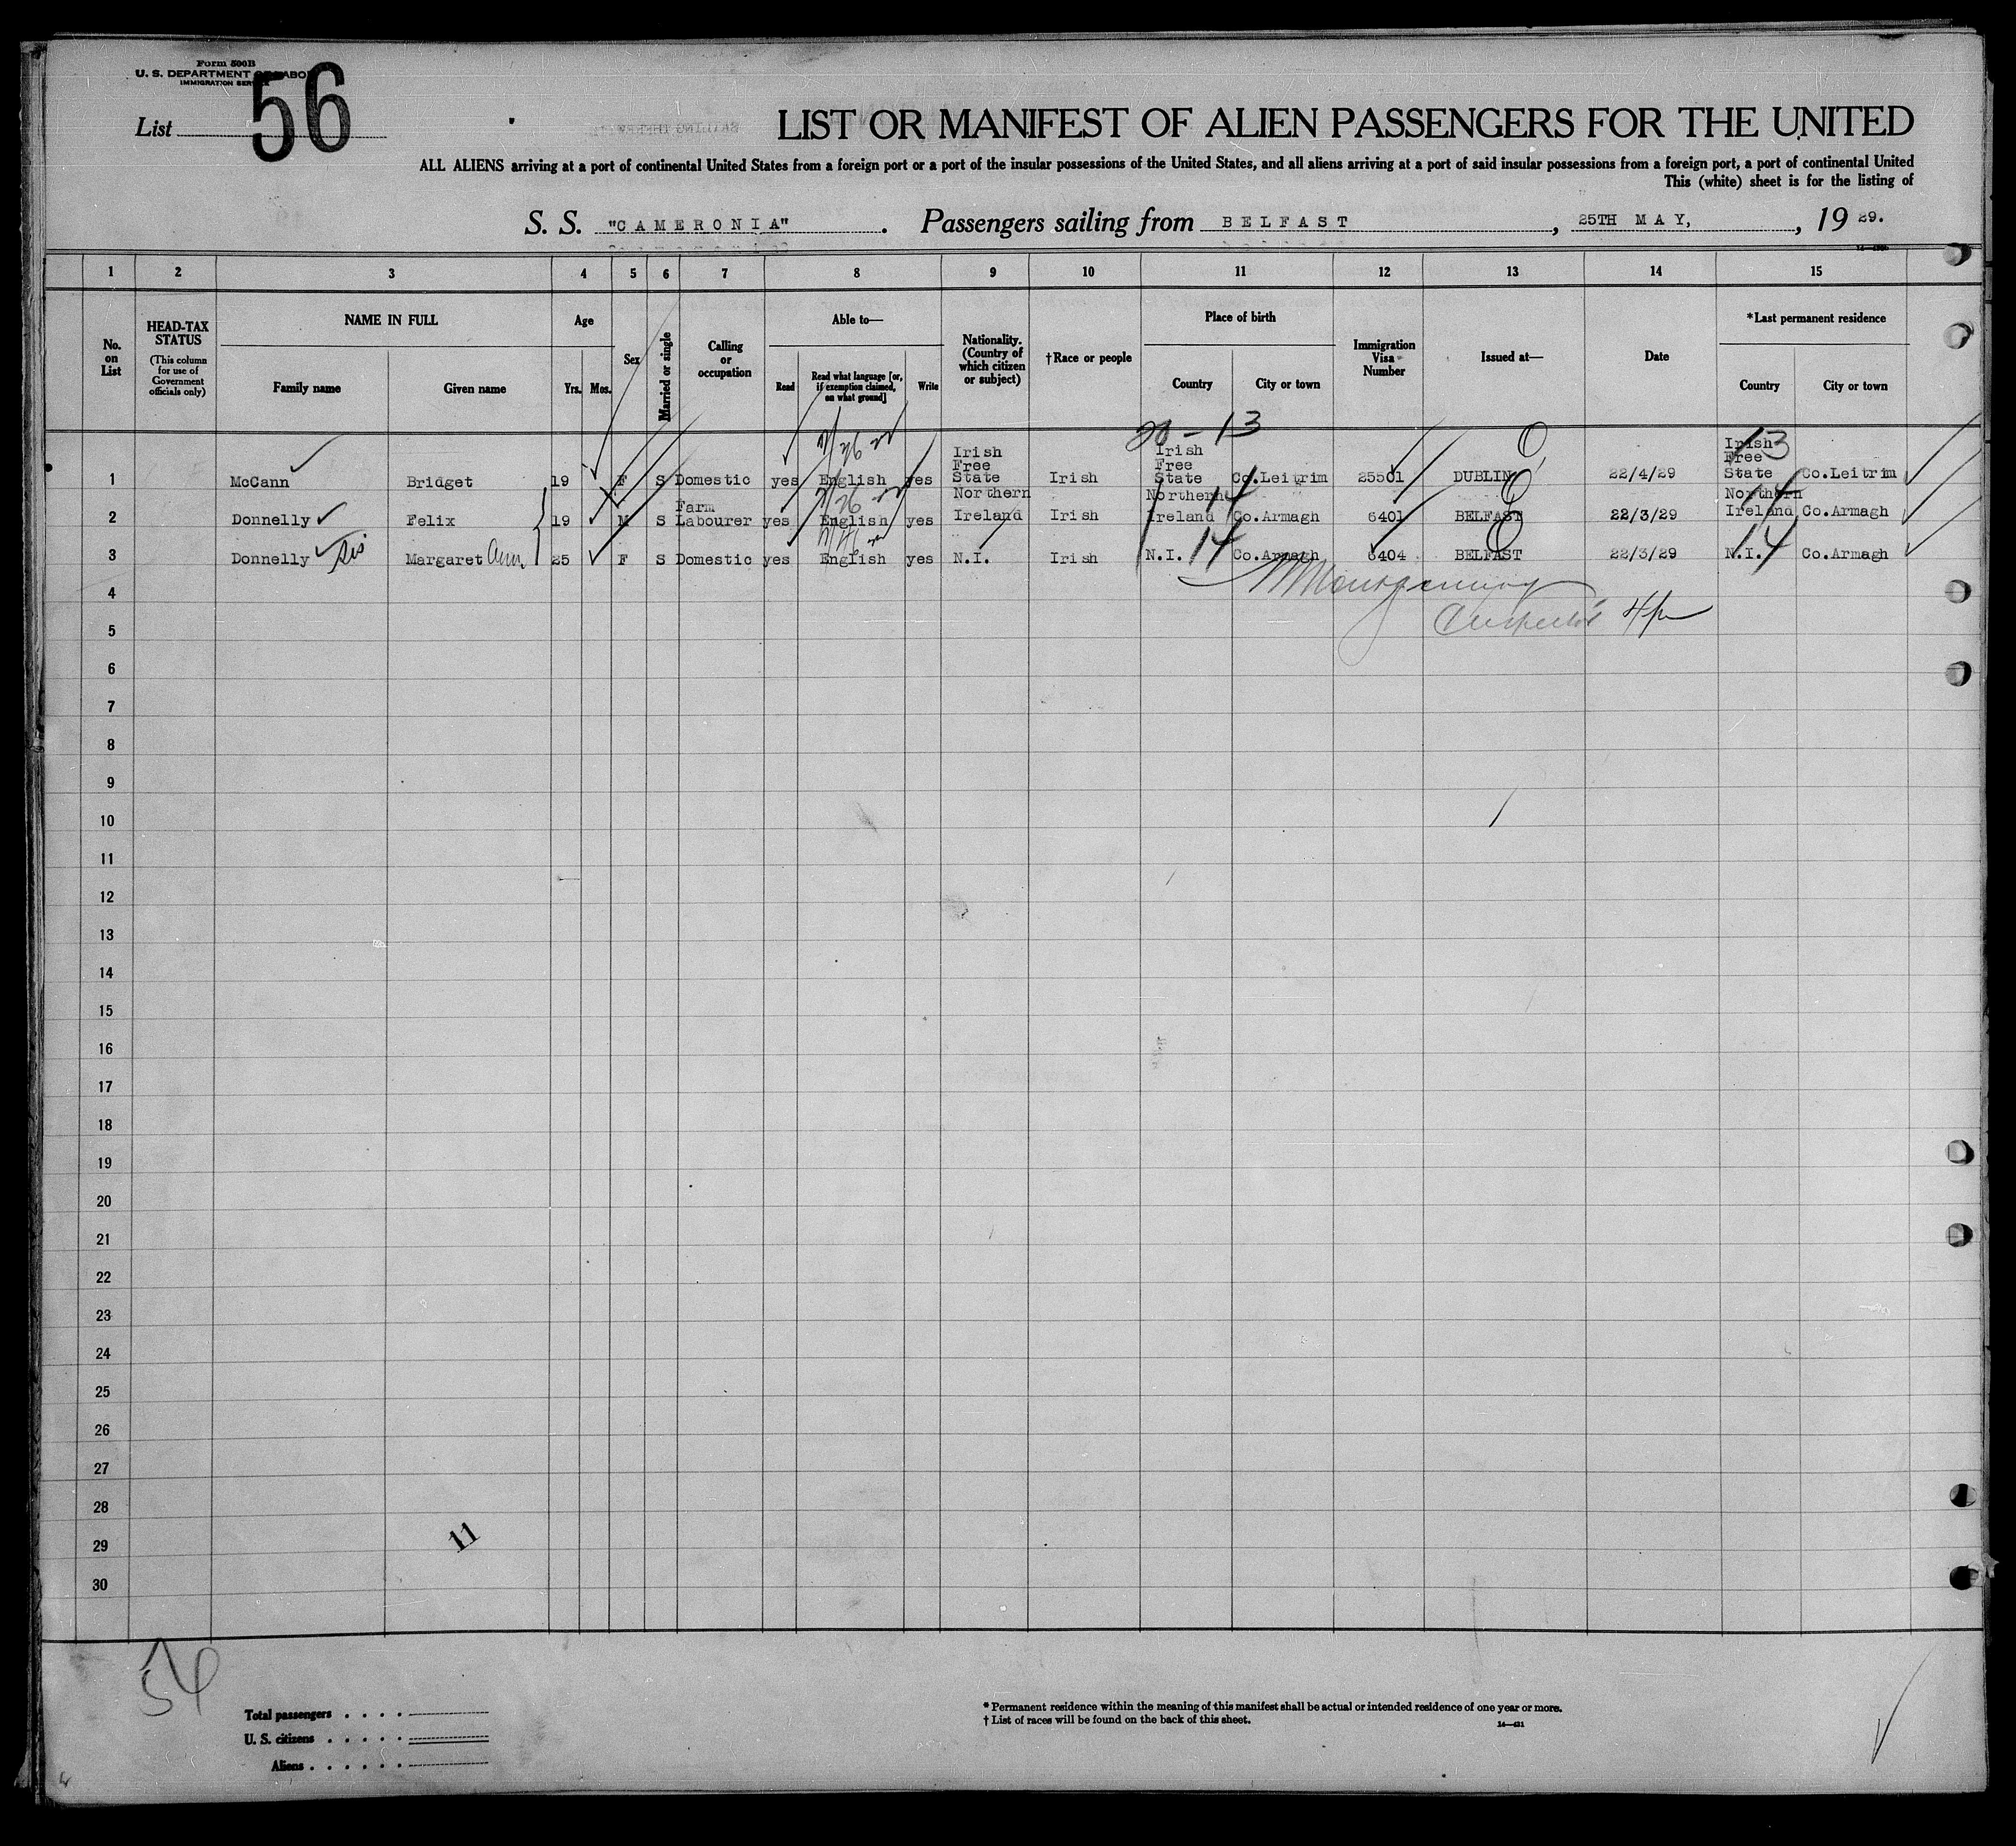 Form 500B
U. S. DEPARTMENT OF LABOR
IMMIGRATION SERVICE
List 56
LIST OR MANIFEST OF ALIEN PASSENGERS FOR THE UNITED
ALL ALIENS arriving at a port of continental United States from a foreign port or a port of the insular possessions of the United States, and all aliens arriving at a port of said insular possessions from a foreign port, a port of continental United
This (white) sheet is for the listing of
S. S. "CAMERONIA". Passengers sailing from BELFAST, 25TH MAY, 19 29.
1 2 3 4 5 6 7 8 9 10 11 12 13 14 15
No. on List
HEAD-TAX STATUS (This column for use of Government officials only)
NAME IN FULL
Family name
Given name
Age
Yrs. Mos.
Sex
Married or single
Calling or occupation
Able to—
Read
Read what language [or, if exemption claimed, on what ground]
Write
Nationality. (Country of which citizen or subject)
†Race or people
Place of birth
Country
City or town
Immigration Visa Number
Issued at—
Date
*Last permanent residence
Country
City or town
20 - 13
1 McCann Bridget 19 F S Domestic yes English yes Irish Free State Irish Irish Free State Co.Leitrim 25501 DUBLIN 22/4/29 Irish Free State 13 Co.Leitrim
2 Donnelly Felix 19 M S Farm Labourer yes English yes Northern Ireland Irish Northern Ireland 14 Co.Armagh 6401 BELFAST 22/3/29 Northern Ireland 14 Co.Armagh
3 Donnelly sis Margaret Ann 25 F S Domestic yes English yes N.I. Irish N.I. 14 Co.Armagh 6404 BELFAST 22/3/29 N.I. 14 Co.Armagh
4 Montgomery
5 Inspector
6
7
8
9
10
11
12
13
14
15
16
17
18
19
20
21
22
23
24
25
26
27
28
29 11
30
Total passengers . . . .
U. S. citizens . . . . .
Aliens . . . . . .
* Permanent residence within the meaning of this manifest shall be actual or intended residence of one year or more.
† List of races will be found on the back of this sheet.
14—421